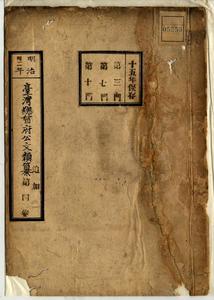 十五年保存
第三門
第七門
第十門
明治
四二年
臺灣總督府公文類纂
追加
第四卷
05253